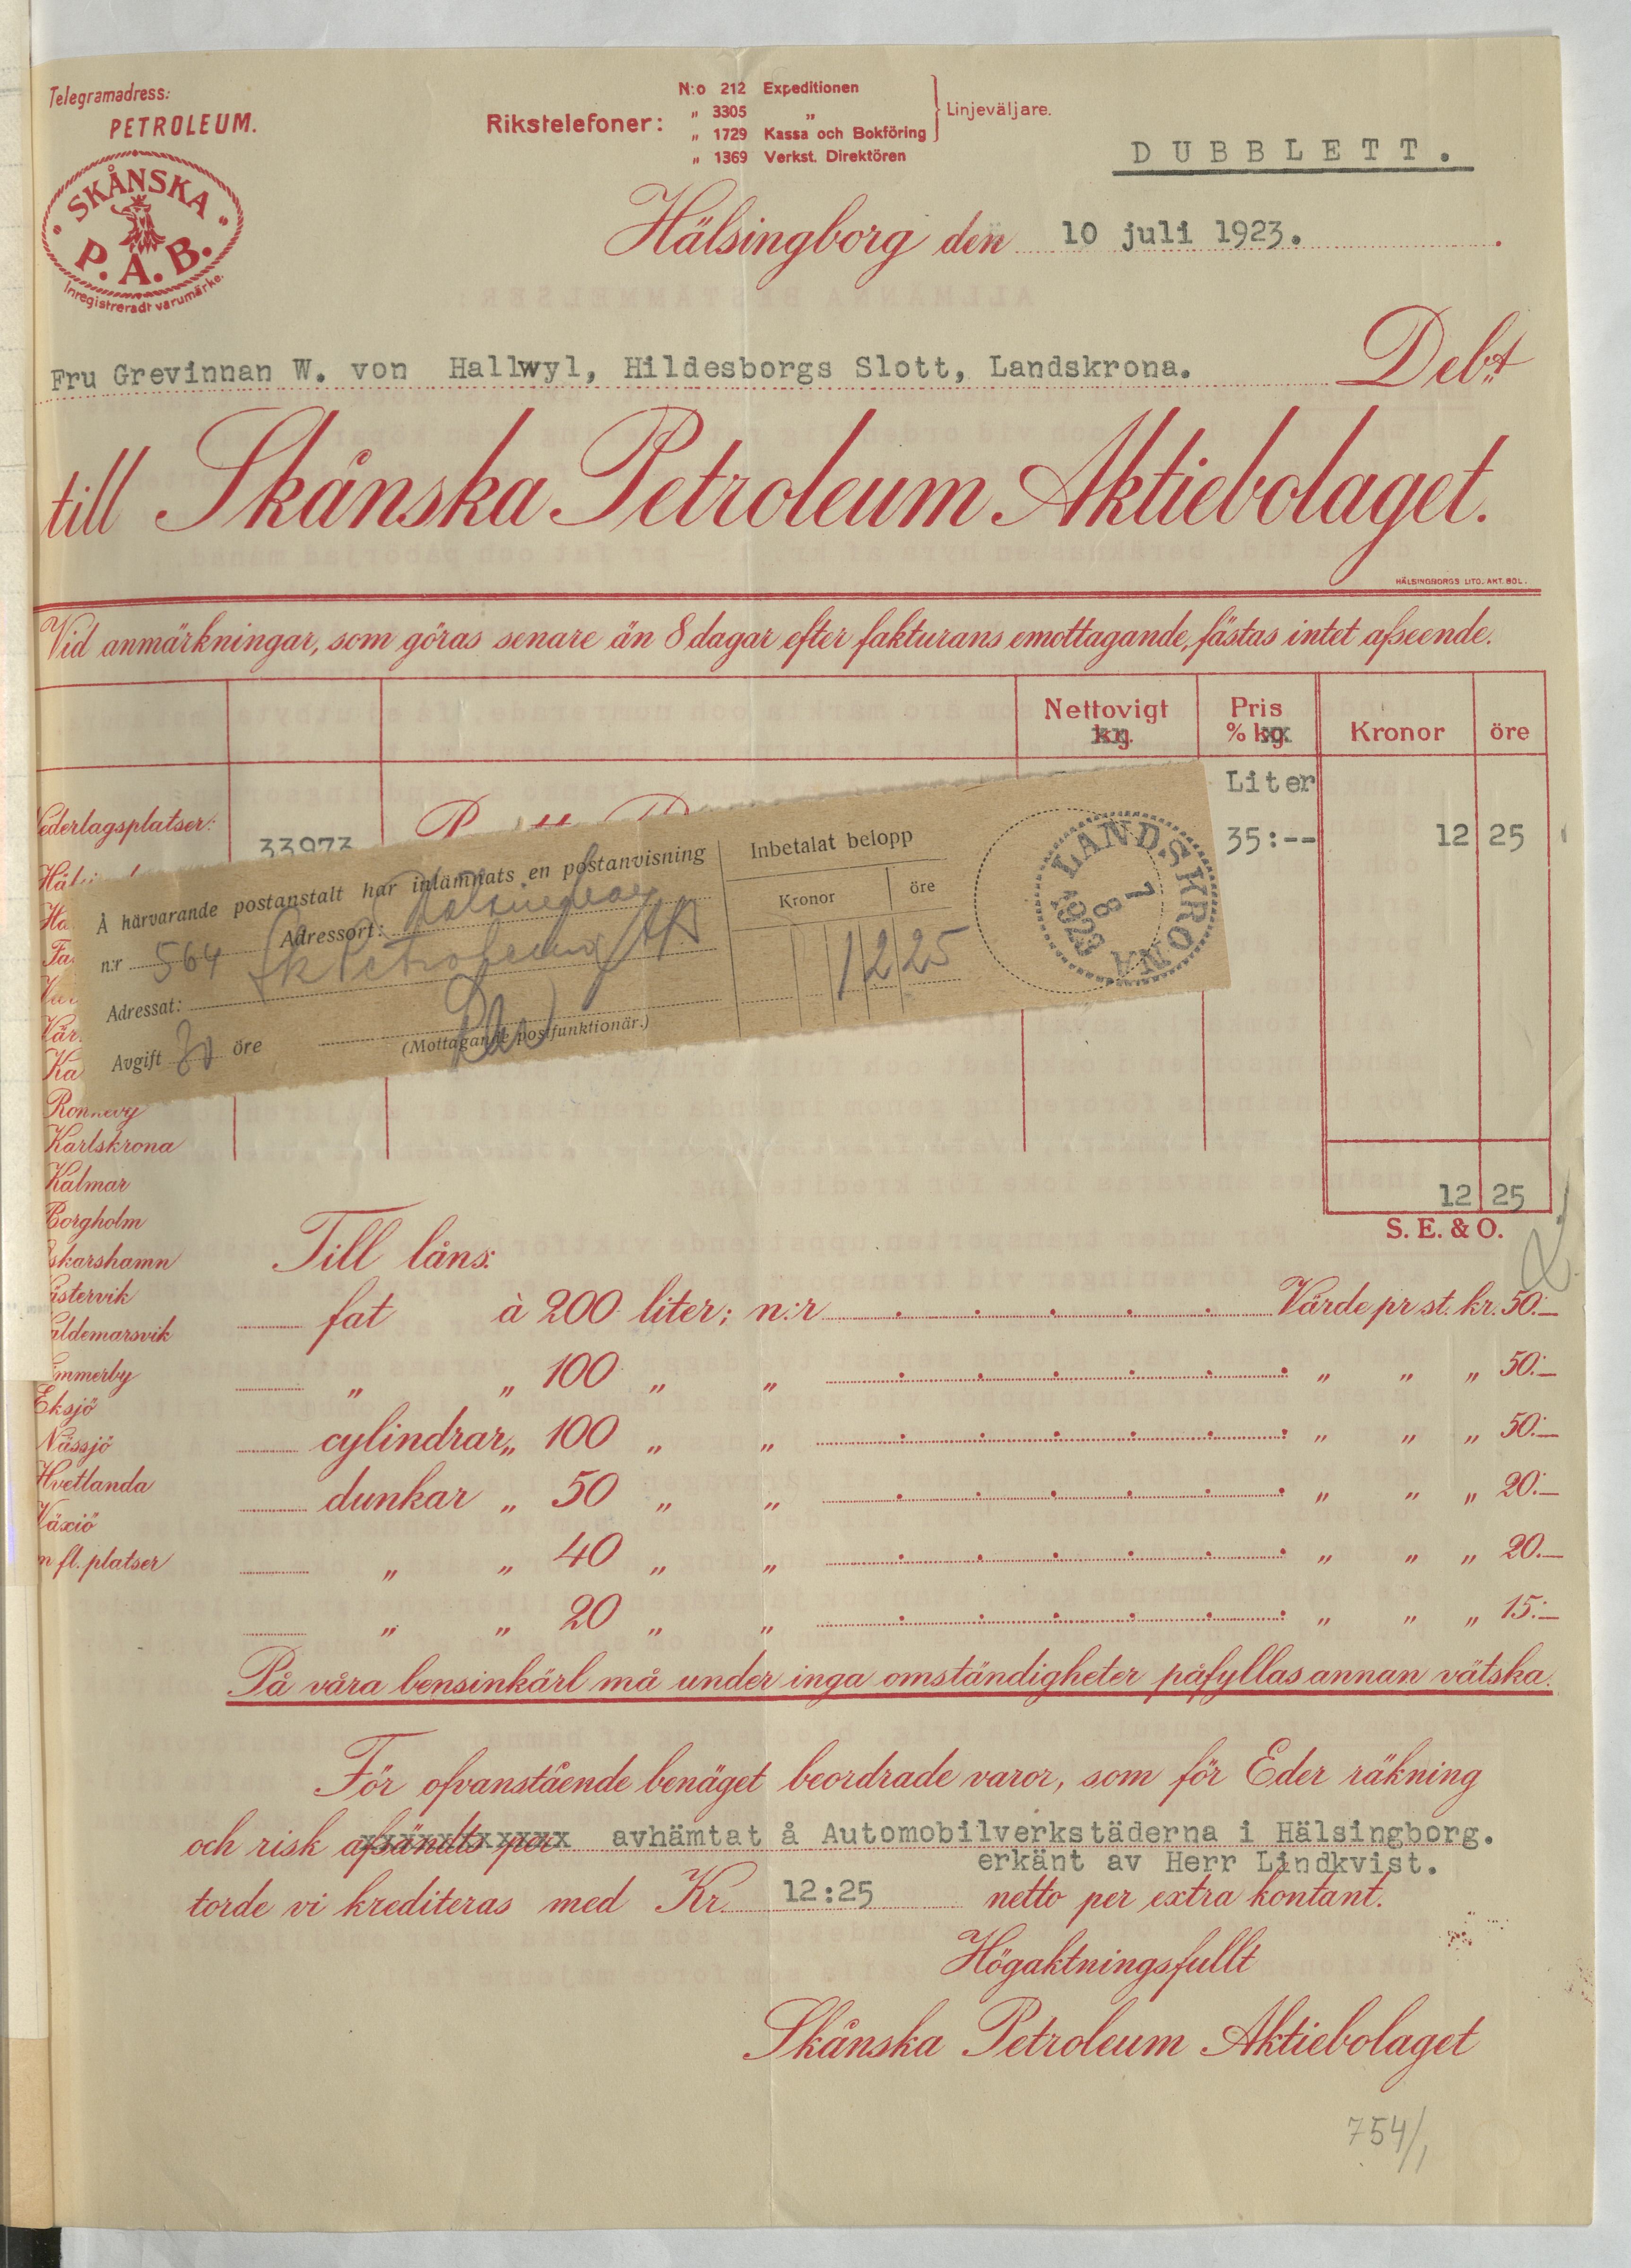 Telegramadress:
PETROLEUM.
Rikstelefoner:
N:o 212 Expeditionen
„ 3305 „
„ 1729 Kassa och Bokföring
„ 1369 Verkst. Direktören
Linjeväljare.
DUBBLETT.
SKÅNSKA
P.A.B.
Inregistreradt varumärke.
Hälsingborg den 10 juli 1923.
Fru Grevinnan W. von Hallwyl, Hildesborgs Slott, Landskrona. Debt
till Skånska Petroleum Aktiebolaget.
HÄLSINGBORGS LITO. AKT. BOL.
Vid anmärkningar, som göras senare än 8 dagar efter fakturans emottagande, fästas intet afseende.
Nettovigt kg. Pris % kg. Kronor öre
Liter
Nederlagsplatser:
33973 35:-- 12 25
Å härvarande postanstalt har inlämnats en postanvisning
n:r 564 Adressort: Hälsingborg
Adressat: Sk Petroleum AB
Avgift 30 öre
(Mottagande postfunktionär.)
Inbetalat belopp
Kronor öre
12 25
LANDSKRONA
7 8 1923
Ronneby
Karlskrona
Kalmar
Borgholm
Oskarshamn
Västervik
Valdemarsvik
Vimmerby
Eksjö
Nässjö
Hvetlanda
Växiö
m fl. platser
12 25
S. E. & O.
Till låns:
fat à 200 liter; n:r Värde pr st. kr. 50:—
„ „ 100 „ „ „ „ „ 50:—
cylindrar „ 100 „ „ „ „ „ 50:—
dunkar „ 50 „ „ „ „ „ 20:—
„ „ 40 „ „ „ „ „ 20.—
„ „ 20 „ „ „ „ „ 15:—
På våra bensinkärl må under inga omständigheter påfyllas annan vätska.
För ofvanstående benäget beordrade varor, som för Eder räkning
och risk afsändts per avhämtat å Automobilverkstäderna i Hälsingborg.
erkänt av Herr Lindkvist.
torde vi krediteras med Kr. 12:25 netto per extra kontant.
Högaktningsfullt
Skånska Petroleum Aktiebolaget
754/1